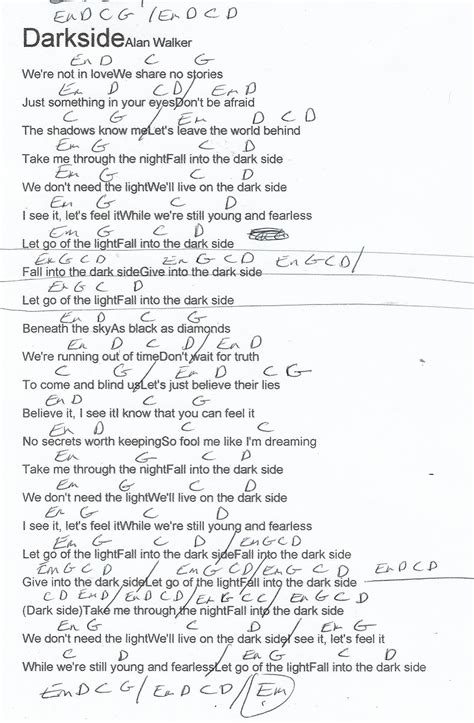 Em D C G / Em D C D
Darkside Alan Walker
Em D C G
We're not in loveWe share no stories
Em D C D / Em D
Just something in your eyesDon't be afraid
C G / Em D C D
The shadows know meLet's leave the world behind
Em G C D
Take me through the nightFall into the dark side
Em G C D
We don't need the lightWe'll live on the dark side
Em G C D
I see it, let's feel itWhile we're still young and fearless
Em G C D
Let go of the lightFall into the dark side
Em G C D Em G C D Em G C D /
Fall into the dark sideGive into the dark side
Em G C D
Let go of the lightFall into the dark side
Em D C G
Beneath the skyAs black as diamonds
Em D C D / Em D
We're running out of timeDon't wait for truth
C G / Em D C G
To come and blind usLet's just believe their lies
Em D C G
Believe it, I see itI know that you can feel it
Em D C C
No secrets worth keepingSo fool me like I'm dreaming
Em G C D
Take me through the nightFall into the dark side
Em G C D
We don't need the lightWe'll live on the dark side
Em G C D
I see it, let's feel itWhile we're still young and fearless
Em G C D / Em G C D
Let go of the lightFall into the dark sideFall into the dark side
Em G C D / Em G C D / Em G C D Em D C D
Give into the dark sideLet go of the lightFall into the dark side
C D Em D / Em D C D / Em G C C / Em G C D
(Dark side)Take me through the nightFall into the dark side
Em G C D / Em G
We don't need the lightWe'll live on the dark sideI see it, let's feel it
C D / Em G C D
While we're still young and fearlessLet go of the lightFall into the dark side
Em D C G / Em D C D / Em